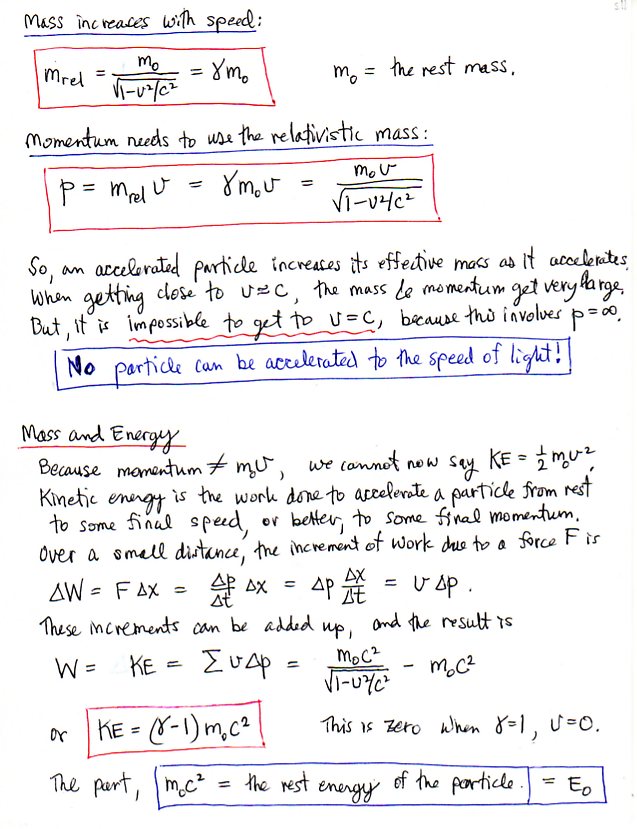 Mass increases with speed:
m_rel = m₀/√(1-v²/c²) = γm₀    m₀ = the rest mass.
Momentum needs to use the relativistic mass:
p = m_rel v = γm₀v = m₀v/√(1-v²/c²)
So, an accelerated particle increases its effective mass as it accelerates.
When getting close to v≈c, the mass & momentum get very large.
But, it is impossible to get to v=c, because this involves p=∞.
No particle can be accelerated to the speed of light!
Mass and Energy
Because momentum ≠ m₀v, we cannot now say KE = ½m₀v².
Kinetic energy is the work done to accelerate a particle from rest
to some final speed, or better, to some final momentum.
Over a small distance, the increment of work due to a force F is
ΔW = FΔx = Δp/Δt Δx = Δp Δx/Δt = vΔp.
These increments can be added up, and the result is
W = KE = ΣvΔp = m₀c²/√(1-v²/c²) - m₀c²
or KE = (γ-1)m₀c²    This is zero when γ=1, v=0.
The part, m₀c² = the rest energy of the particle. = E₀